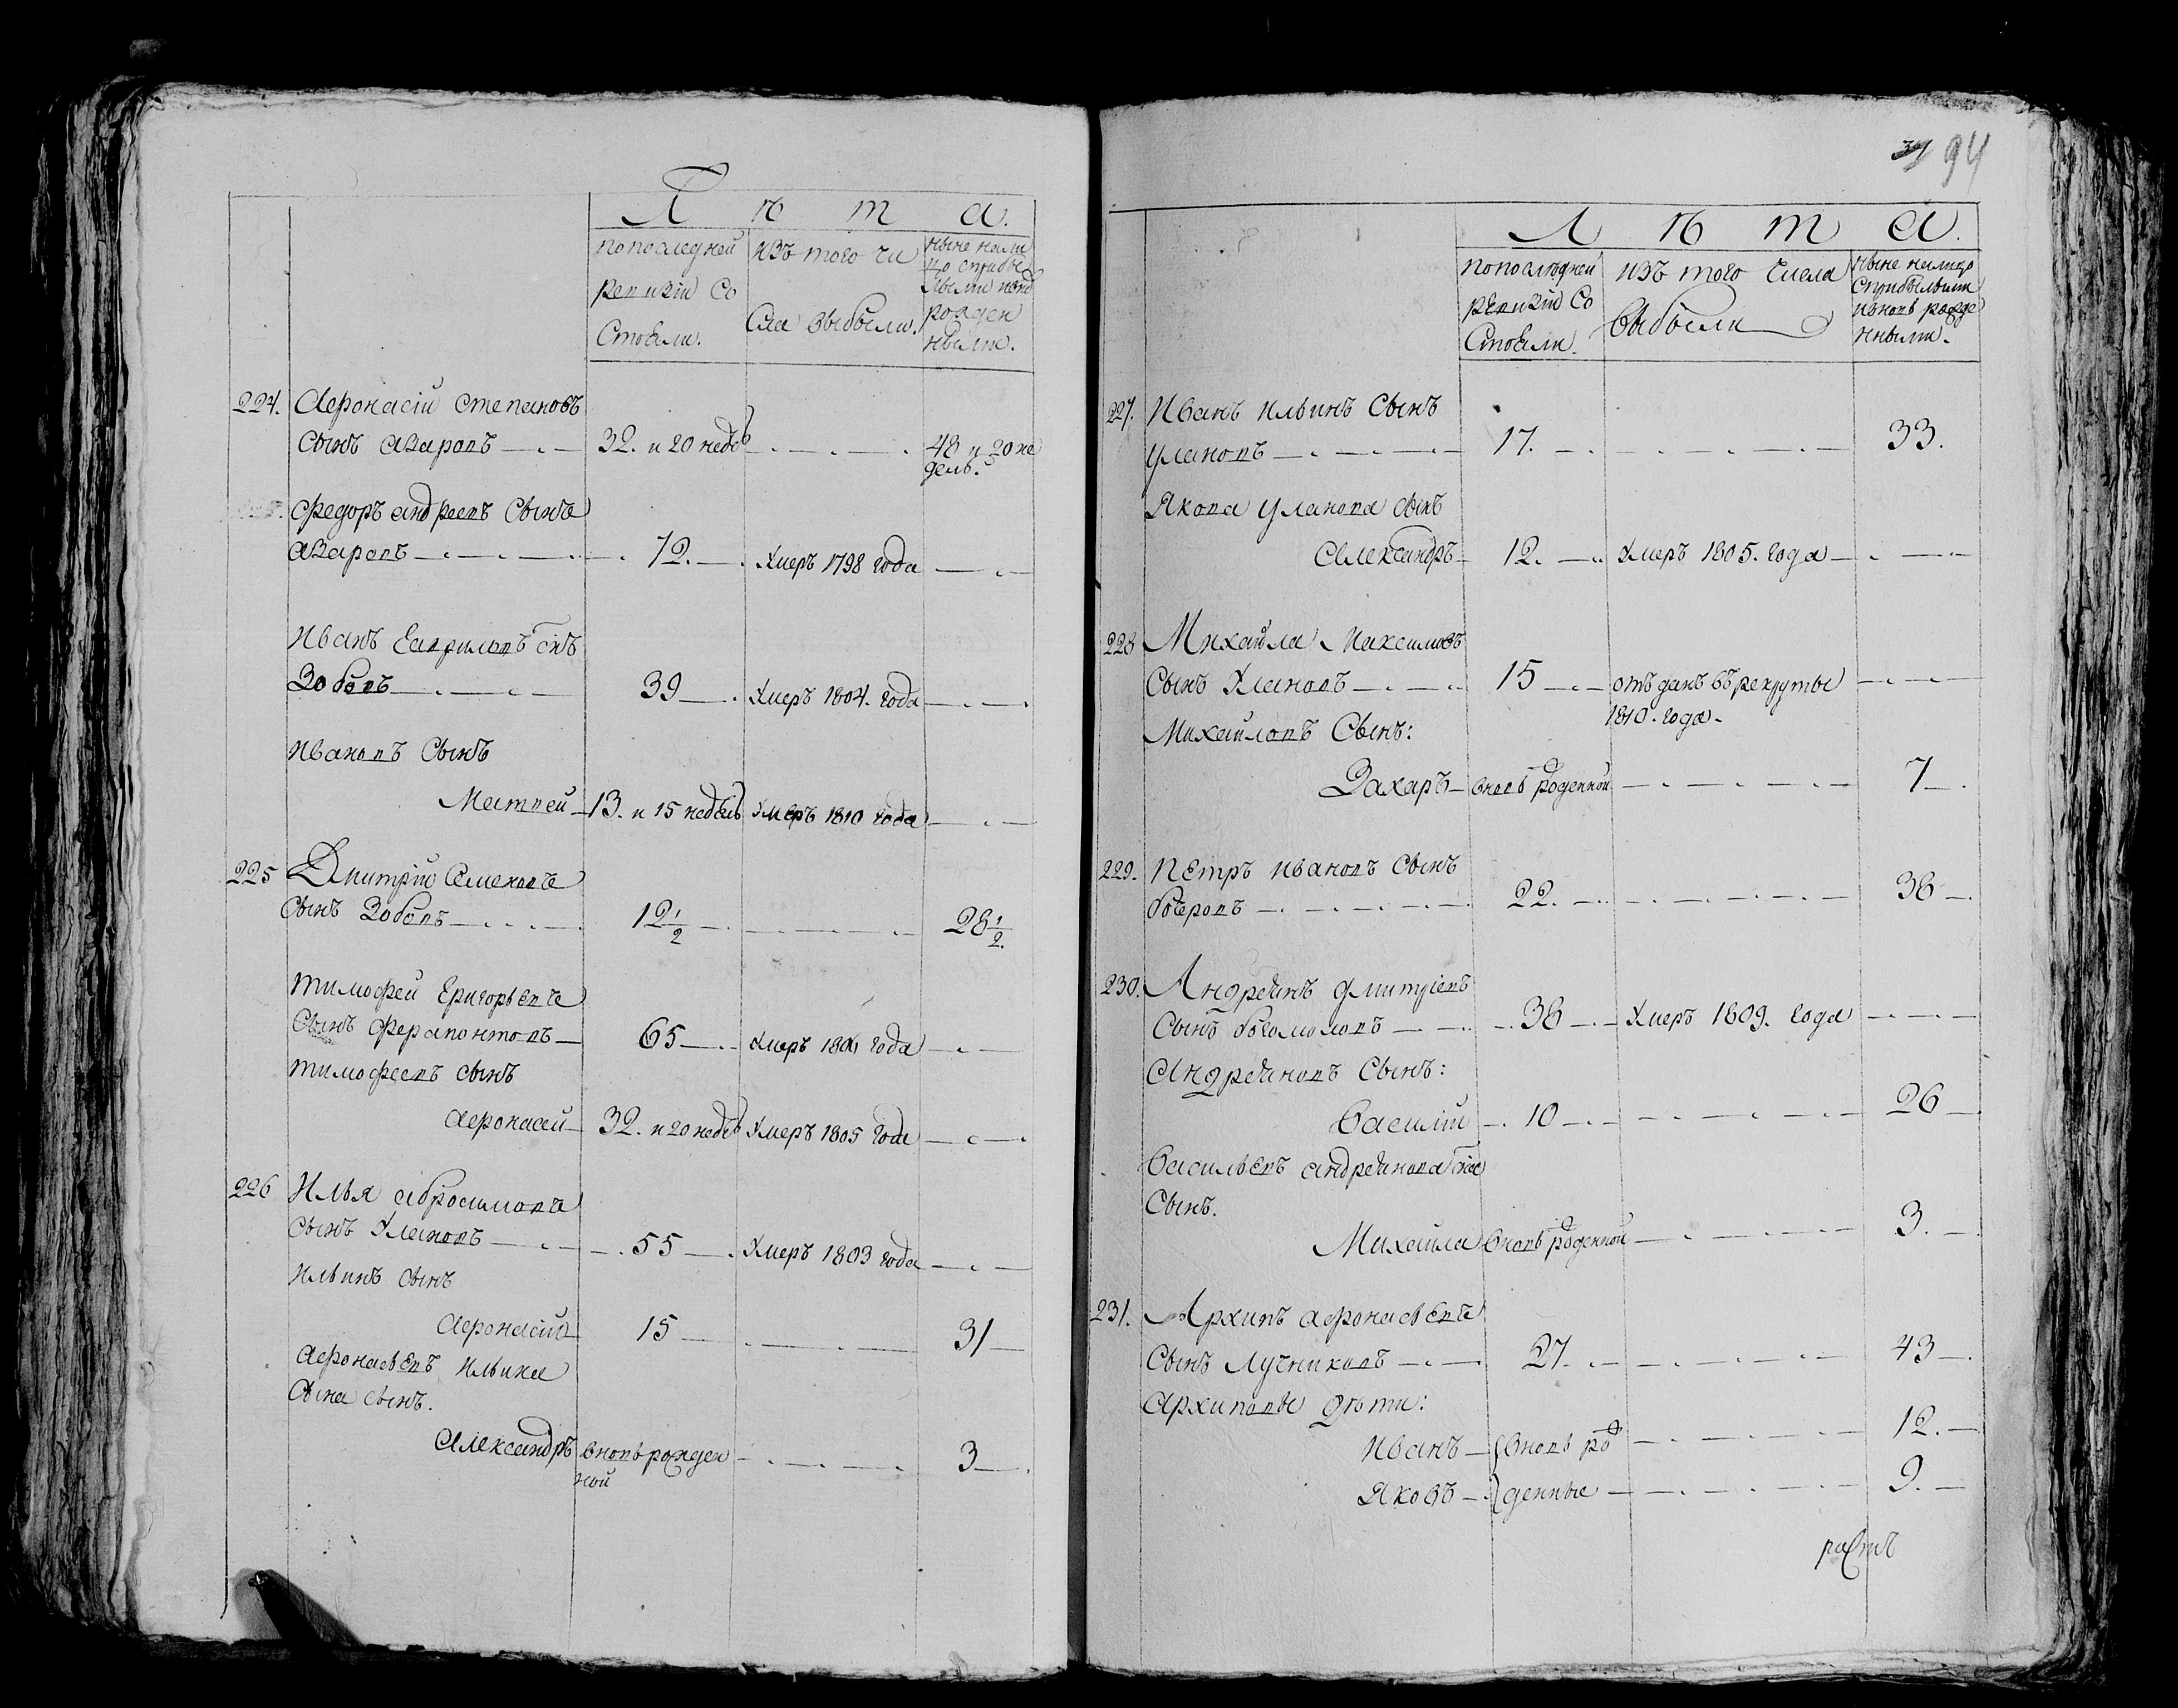 Л ѣ т а.
попоследней
ревизіи Со
Стояли.
изъ того чи
Сла выбыли.
ныне нали
цо
рожден
ными.
224. Афонасій степановъ
сынъ азаровъ 32. и 20 недѣ 48 и 20 не
дель.
Федоръ андреевъ Сынъ
азаровъ 72. Умеръ 1798 года
Иванъ Гавриловъ снъ
Зобовъ 39 Умеръ 1804. года
Ивановъ Сынъ
Матвей 13. и 15 недѣль Умеръ 1810 года
225 Дмитрій Семеновъ
сынъ Зобовъ 12 1/2 28 1/2.
Тимофей Григорьевъ
Сынъ Ферапонтовъ 65 Умеръ года
Тимофеевъ сынъ
Афонасей 32. и 20 недѣ Умеръ 1805 года
226 Илья абросимовъ
Сынъ Улановъ 55 Умеръ 1803 года
Ильинъ сынъ
Афонасій 15 31
Афонасьевъ Ильина
Сына сынъ.
Александръ вновь рожден 3
ной
94
Л ѣ т а.
попослѣдней
ревизіи Со
Стояли.
изъ того Числа
Выбыли
ныне налицо
Сприбылыми
ивновь рожде
нными.
227. Иванъ Ильинъ Сынъ
улановъ 17. 33.
Якова Уланова сынъ
Александръ 12. Умеръ 1805. года
228 Михайла Максимовъ
Сынъ Улановъ 15 отъданъ въ рекруты
1810. года.
Михайловъ Сынъ:
Захаръ вновь роденной 7
229. Петръ Ивановъ Сынъ
бочеровъ 22. 38
230. Андреянъ дмитріевъ
Сынъ богомоловъ 38 Умеръ 1809. года
Андреяновъ Сынъ:
Василій 10 26
Васильевъ андреянова сна
Сынъ.
Михайла вновь роденной 3.
231. Архипъ афонасьевъ
Сынъ Лучниковъ 27. 43
Архиповы дѣти:
Иванъ вновь ро 12.
Яковъ денные 9.